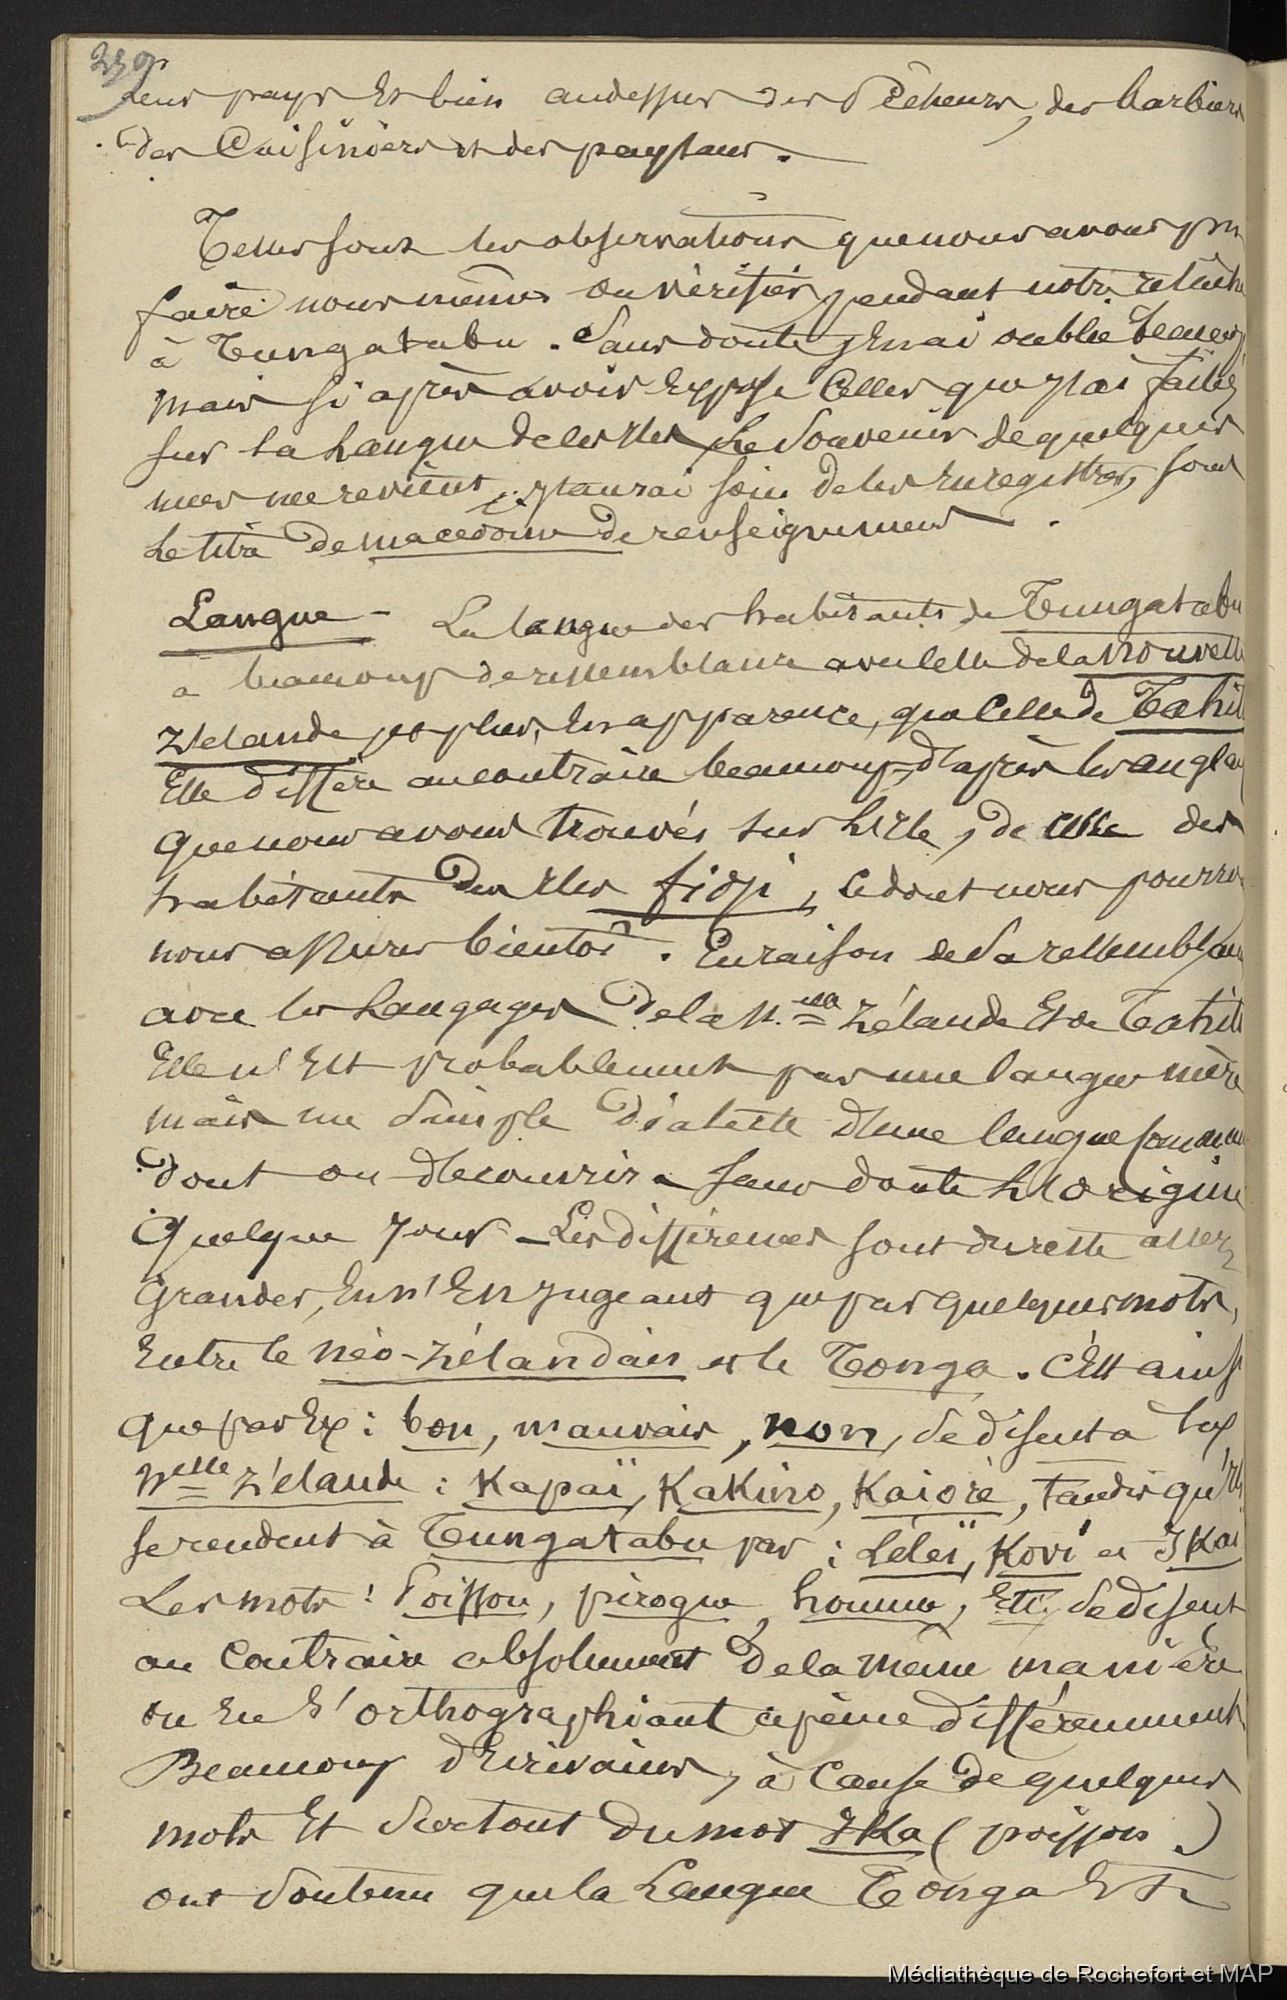 239
leur pays et bien audessus des Pêcheurs, des barbiers
des Cuisiniers et des paysans.
Telles sont les observations que nous avons pu
faire nous mêmes ou vérifier, pendant notre relâche
à Tungatabu. Sans doute j'en ai oublié beaucoup,
mais si après avoir exposé celles que j'ai faites
sur la Langue de ces Iles, le Souvenir de quelques
unes me revient, j'aurai soin de les enregistrer, sous
le titre de macedoine de renseignements.
Langue - La langue des habitants de Tungatabu
a beaucoup de ressemblance avec celle de la Nouvelle
Zélande, et plus, en apparence, que celle de Tahiti
Elle diffère au contraire beaucoup, d'après les anglais
que nous avons trouvés sur l'Ile, de celle des
habitants des Iles fidji, ce dont nous pourrons
nous assurer bientôt. En raison de Sa ressemblance
avec les Langages de la N.elle Zélande et de Tahiti
Elle n'est probablement pas une langue mère
mais un Simple dialecte d'une langue commune
dont on découvrira sans doute l'origine
quelque jour - Les différences sont du reste assez
grandes, en n'en jugeant que par quelques mots,
Entre le néo-Zélandais et le Tonga. C'est ainsi
que par Ex: bon, mauvais, non, se disent à la
Nelle Zélande: Kapaï, Kakino, Kaiore, tandis qu'ils
se rendent à Tungatabu par: Léleï, Kovi et Ikai
Les mots: Poisson, pirogue, homme, Etc. se disent
au contraire absolument de la même manière
ou en s'orthographiant à peine différemment.
Beaucoup d'Ecrivains, à Cause de quelques
mots et surtout du mot Ika (poisson.)
ont soutenu que la Langue Tonga est
Médiathèque de Rochefort et MAP